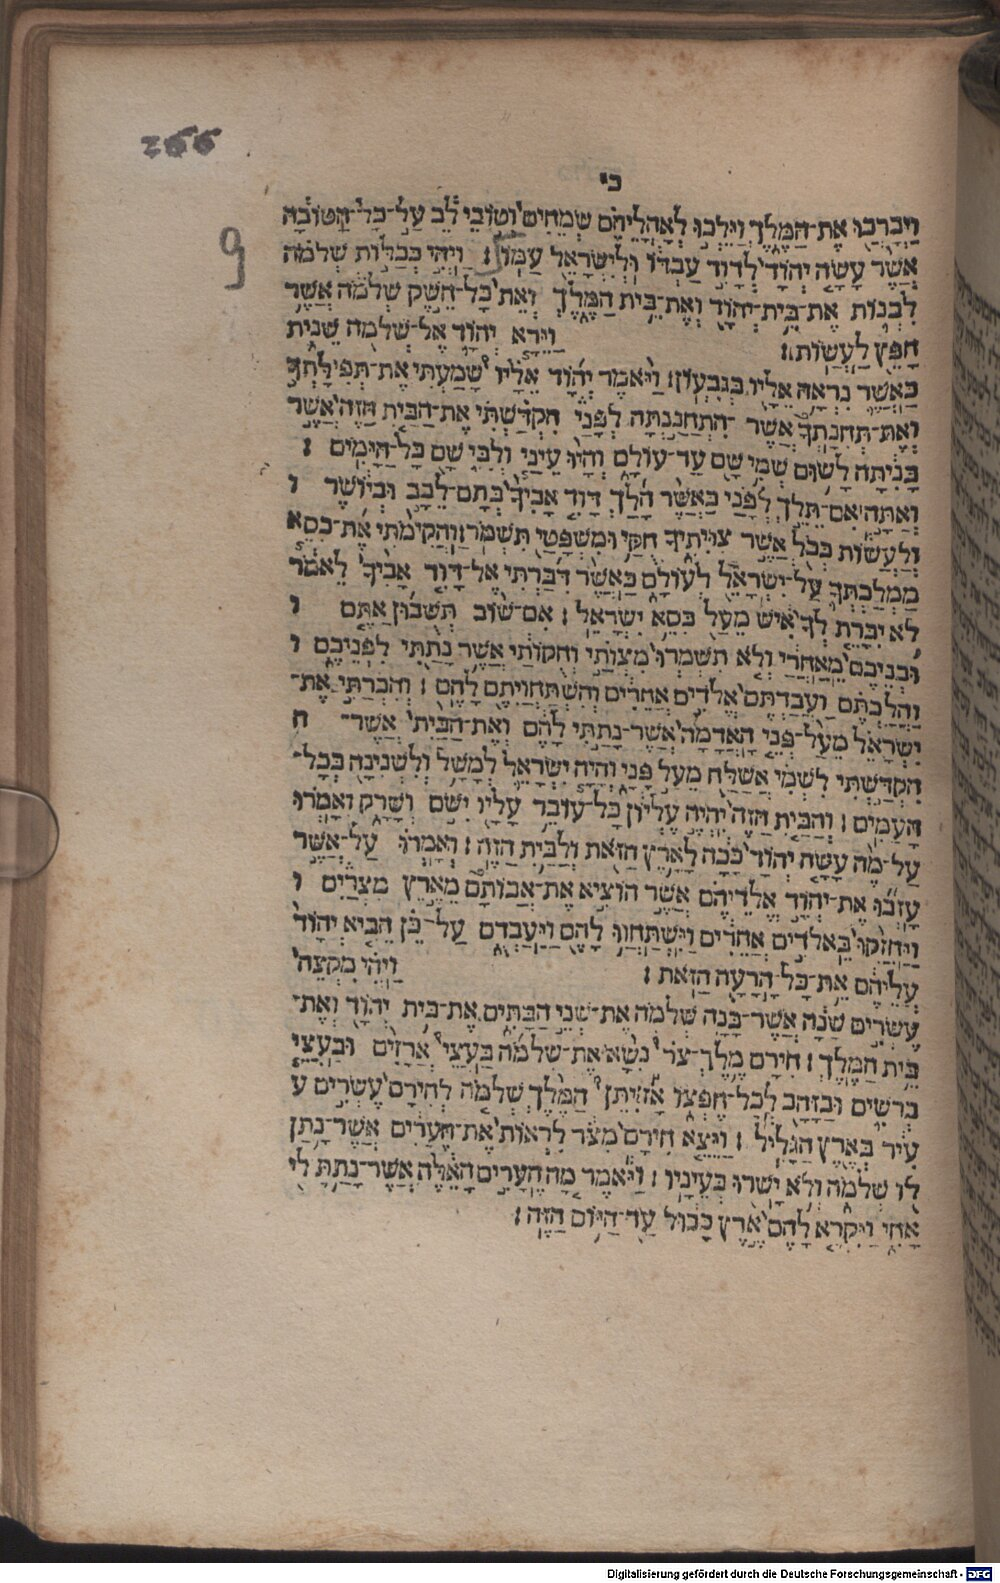 266
כי
וַיְבָרֲכוּ אֶת־הַמֶּלֶךְ וַיֵּלְכוּ לְאָהֳלֵיהֶם שְׂמֵחִים וְטוֹבֵי לֵב עַל־כָּל־הַטּוֹבָה
9 אֲשֶׁר עָשָׂה יְהוָֹד לְדָוִד עַבְדּוֹ וּלְיִשְׂרָאֵל עַמּוֹ : וַיְהִי כְּכַלּוֹת שְׁלֹמֹה
לִבְנוֹת אֶת־בֵּית־יְהוָֹד וְאֶת־בֵּית הַמֶּלֶךְ וְאֵת כָּל־חֵשֶׁק שְׁלֹמֹה אֲשֶׁר
חָפֵץ לַעֲשׂוֹת : וַיֵּרָא יְהוָֹד אֶל־שְׁלֹמֹה שֵׁנִית
כַּאֲשֶׁר נִרְאָה אֵלָיו בְּגִבְעוֹן : וַיֹּאמֶר יְהוָֹד אֵלָיו שָׁמַעְתִּי אֶת־תְּפִילָּתְךָ
וְאֶת־תְּחִנָּתְךָ אֲשֶׁר הִתְחַנַּנְתָּה לְפָנַי הִקְדַּשְׁתִּי אֶת־הַבַּיִת הַזֶּה אֲשֶׁר
בָּנִיתָה לָשׂוּם שְׁמִי שָׁם עַד־עוֹלָם וְהָיוּ עֵינַי וְלִבִּי שָׁם כָּל־הַיָּמִים :
וְאַתָּה אִם־תֵּלֵךְ לְפָנַי כַּאֲשֶׁר הָלַךְ דָּוִד אָבִיךָ בְּתָם־לֵבָב וּבְיוֹשֶׁר ו
וְלַעֲשׂוֹת כְּכֹל אֲשֶׁר צִוִּיתִיךָ חֻקַּי וּמִשְׁפָּטַי תִּשְׁמֹר : וַהֲקִימֹתִי אֶת־כִּסֵּא
מַמְלַכְתְּךָ עַל־יִשְׂרָאֵל לְעוֹלָם כַּאֲשֶׁר דִּבַּרְתִּי אֶל־דָּוִד אָבִיךָ לֵאמֹר
לֹא יִכָּרֵת לְךָ אִישׁ מֵעַל כִּסֵּא יִשְׂרָאֵל : אִם־שׁוֹב תְּשֻׁבוּן אַתֶּם ו
וּבְנֵיכֶם מֵאַחֲרַי וְלֹא תִשְׁמְרוּ מִצְוֹתַי וְחֻקּוֹתַי אֲשֶׁר נָתַתִּי לִפְנֵיכֶם ו
וַהֲלַכְתֶּם וַעֲבַדְתֶּם אֱלֹדִים אֲחֵרִים וְהִשְׁתַּחֲוִיתֶם לָהֶם : וְהִכְרַתִּי אֶת־
יִשְׂרָאֵל מֵעַל־פְּנֵי הָאֲדָמָה אֲשֶׁר־נָתַתִּי לָהֶם וְאֶת־הַבַּיִת אֲשֶׁר־ ה
הִקְדַּשְׁתִּי לִשְׁמִי אֲשַׁלַּח מֵעַל פָּנָי וְהָיָה יִשְׂרָאֵל לְמָשָׁל וְלִשְׁנִינָה בְּכָל־
הָעַמִּים : וְהַבַּיִת הַזֶּה יִהְיֶה עֶלְיוֹן כָּל־עוֹבֵר עָלָיו יִשֹּׁם וְשָׁרָק וְאָמְרוּ
עַל־מֶה עָשָׂה יְהוָֹד כָּכָה לָאָרֶץ הַזֹּאת וְלַבַּיִת הַזֶּה : וְאָמְרוּ עַל־אֲשֶׁר
עָזְבוּ אֶת־יְהוָֹד אֱלֹדֵיהֶם אֲשֶׁר הוֹצִיא אֶת־אֲבוֹתָם מֵאֶרֶץ מִצְרַיִם ו
וַיַּחֲזִקוּ בֵּאלֹדִים אֲחֵרִים וַיִּשְׁתַּחֲווּ לָהֶם וַיַּעַבְדֻם עַל־כֵּן הֵבִיא יְהוָֹד
עֲלֵיהֶם אֵת־כָּל־הָרָעָה הַזֹּאת : וַיְהִי מִקְצֵה
עֶשְׂרִים שָׁנָה אֲשֶׁר־בָּנָה שְׁלֹמֹה אֶת־שְׁנֵי הַבָּתִּים אֶת־בֵּית יְהוָֹד וְאֶת־
בֵּית הַמֶּלֶךְ : חִירָם מֶלֶךְ־צֹר נִשָּׂא אֶת־שְׁלֹמֹה בַּעֲצֵי אֲרָזִים וּבַעֲצֵי
בְרֹשִׁים וּבַזָּהָב לְכָל־חֶפְצוֹ אָז יִתֵּן הַמֶּלֶךְ שְׁלֹמֹה לְחִירָם עֶשְׂרִים ע
עִיר בְּאֶרֶץ הַגָּלִיל : וַיֵּצֵא חִירָם מִצֹּר לִרְאוֹת אֶת־הֶעָרִים אֲשֶׁר־נָתַן
לוֹ שְׁלֹמֹה וְלֹא יָשְׁרוּ בְּעֵינָיו : וַיֹּאמֶר מָה הֶעָרִים הָאֵלֶּה אֲשֶׁר־נָתַתָּ לִּי
אָחִי וַיִּקְרָא לָהֶם אֶרֶץ כָּבוּל עַד־הַיּוֹם הַזֶּה :
Digitalisierung gefördert durch die Deutsche Forschungsgemeinschaft - DFG